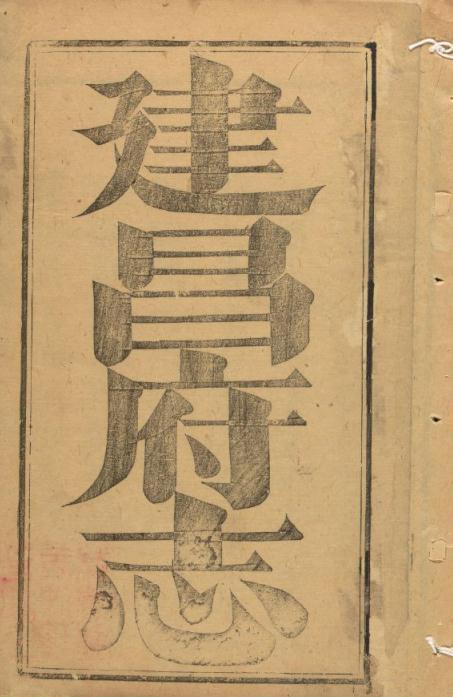 建昌府志